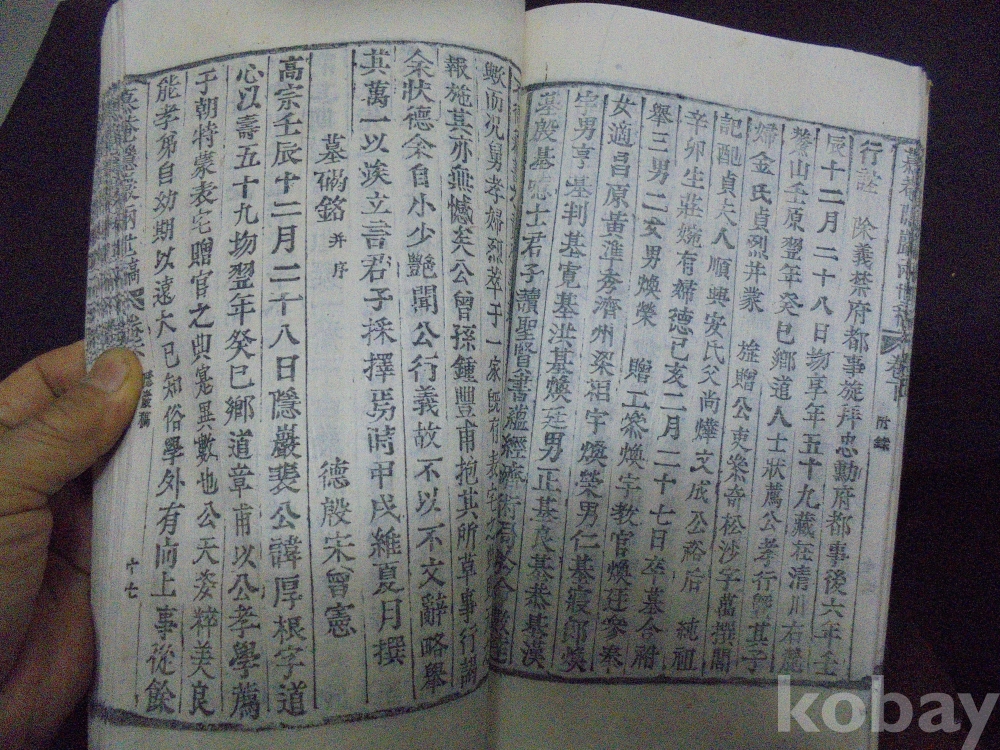 行詮 除義禁府都事旋拜忠勳府都事後六年壬
辰十二月二十八日歿享年五十九藏在清川右麓
山壬原翌年癸巳鄉道人士狀薦公孝行曁其子
婦金氏貞烈并蒙 旌贈公吏參奇松沙宇萬撰閭
記配貞夫人順興安氏父尚燁文成公裕后 純祖
辛卯生莊婉有婦德己亥二月二十七日卒墓合祔
舉三男二女男煥榮 贈工參煥宇教官煥廷參奉
女適昌原黃淮秀濟州梁祖宇煥榮男仁基寢郎
宇男亨基判基寬基洪基煥廷男正基良基恭基漢
基殷基 士君子讀聖賢書蘊經濟術
歟而況舅孝婦烈萃于一家既有
報施其亦無憾矣公曾孫鍾豐甫抱其所草事行謁
余狀德余自小少艷聞公行義故不以不文辭略舉
其萬一以俟立言君子採擇焉時甲戌維夏月撰
墓碣銘 并序 德殷宋曾憲
高宗壬辰十二月二十八日隱巖裵公諱厚根字道
心以壽五十九歿翌年癸巳鄉道章甫以公孝學薦
于朝特蒙表宅贈官之典寔異數也公天姿粹美良
能孝弟自幼期以遠大已知俗學外有向上事從餘
附錄
十七
kobay